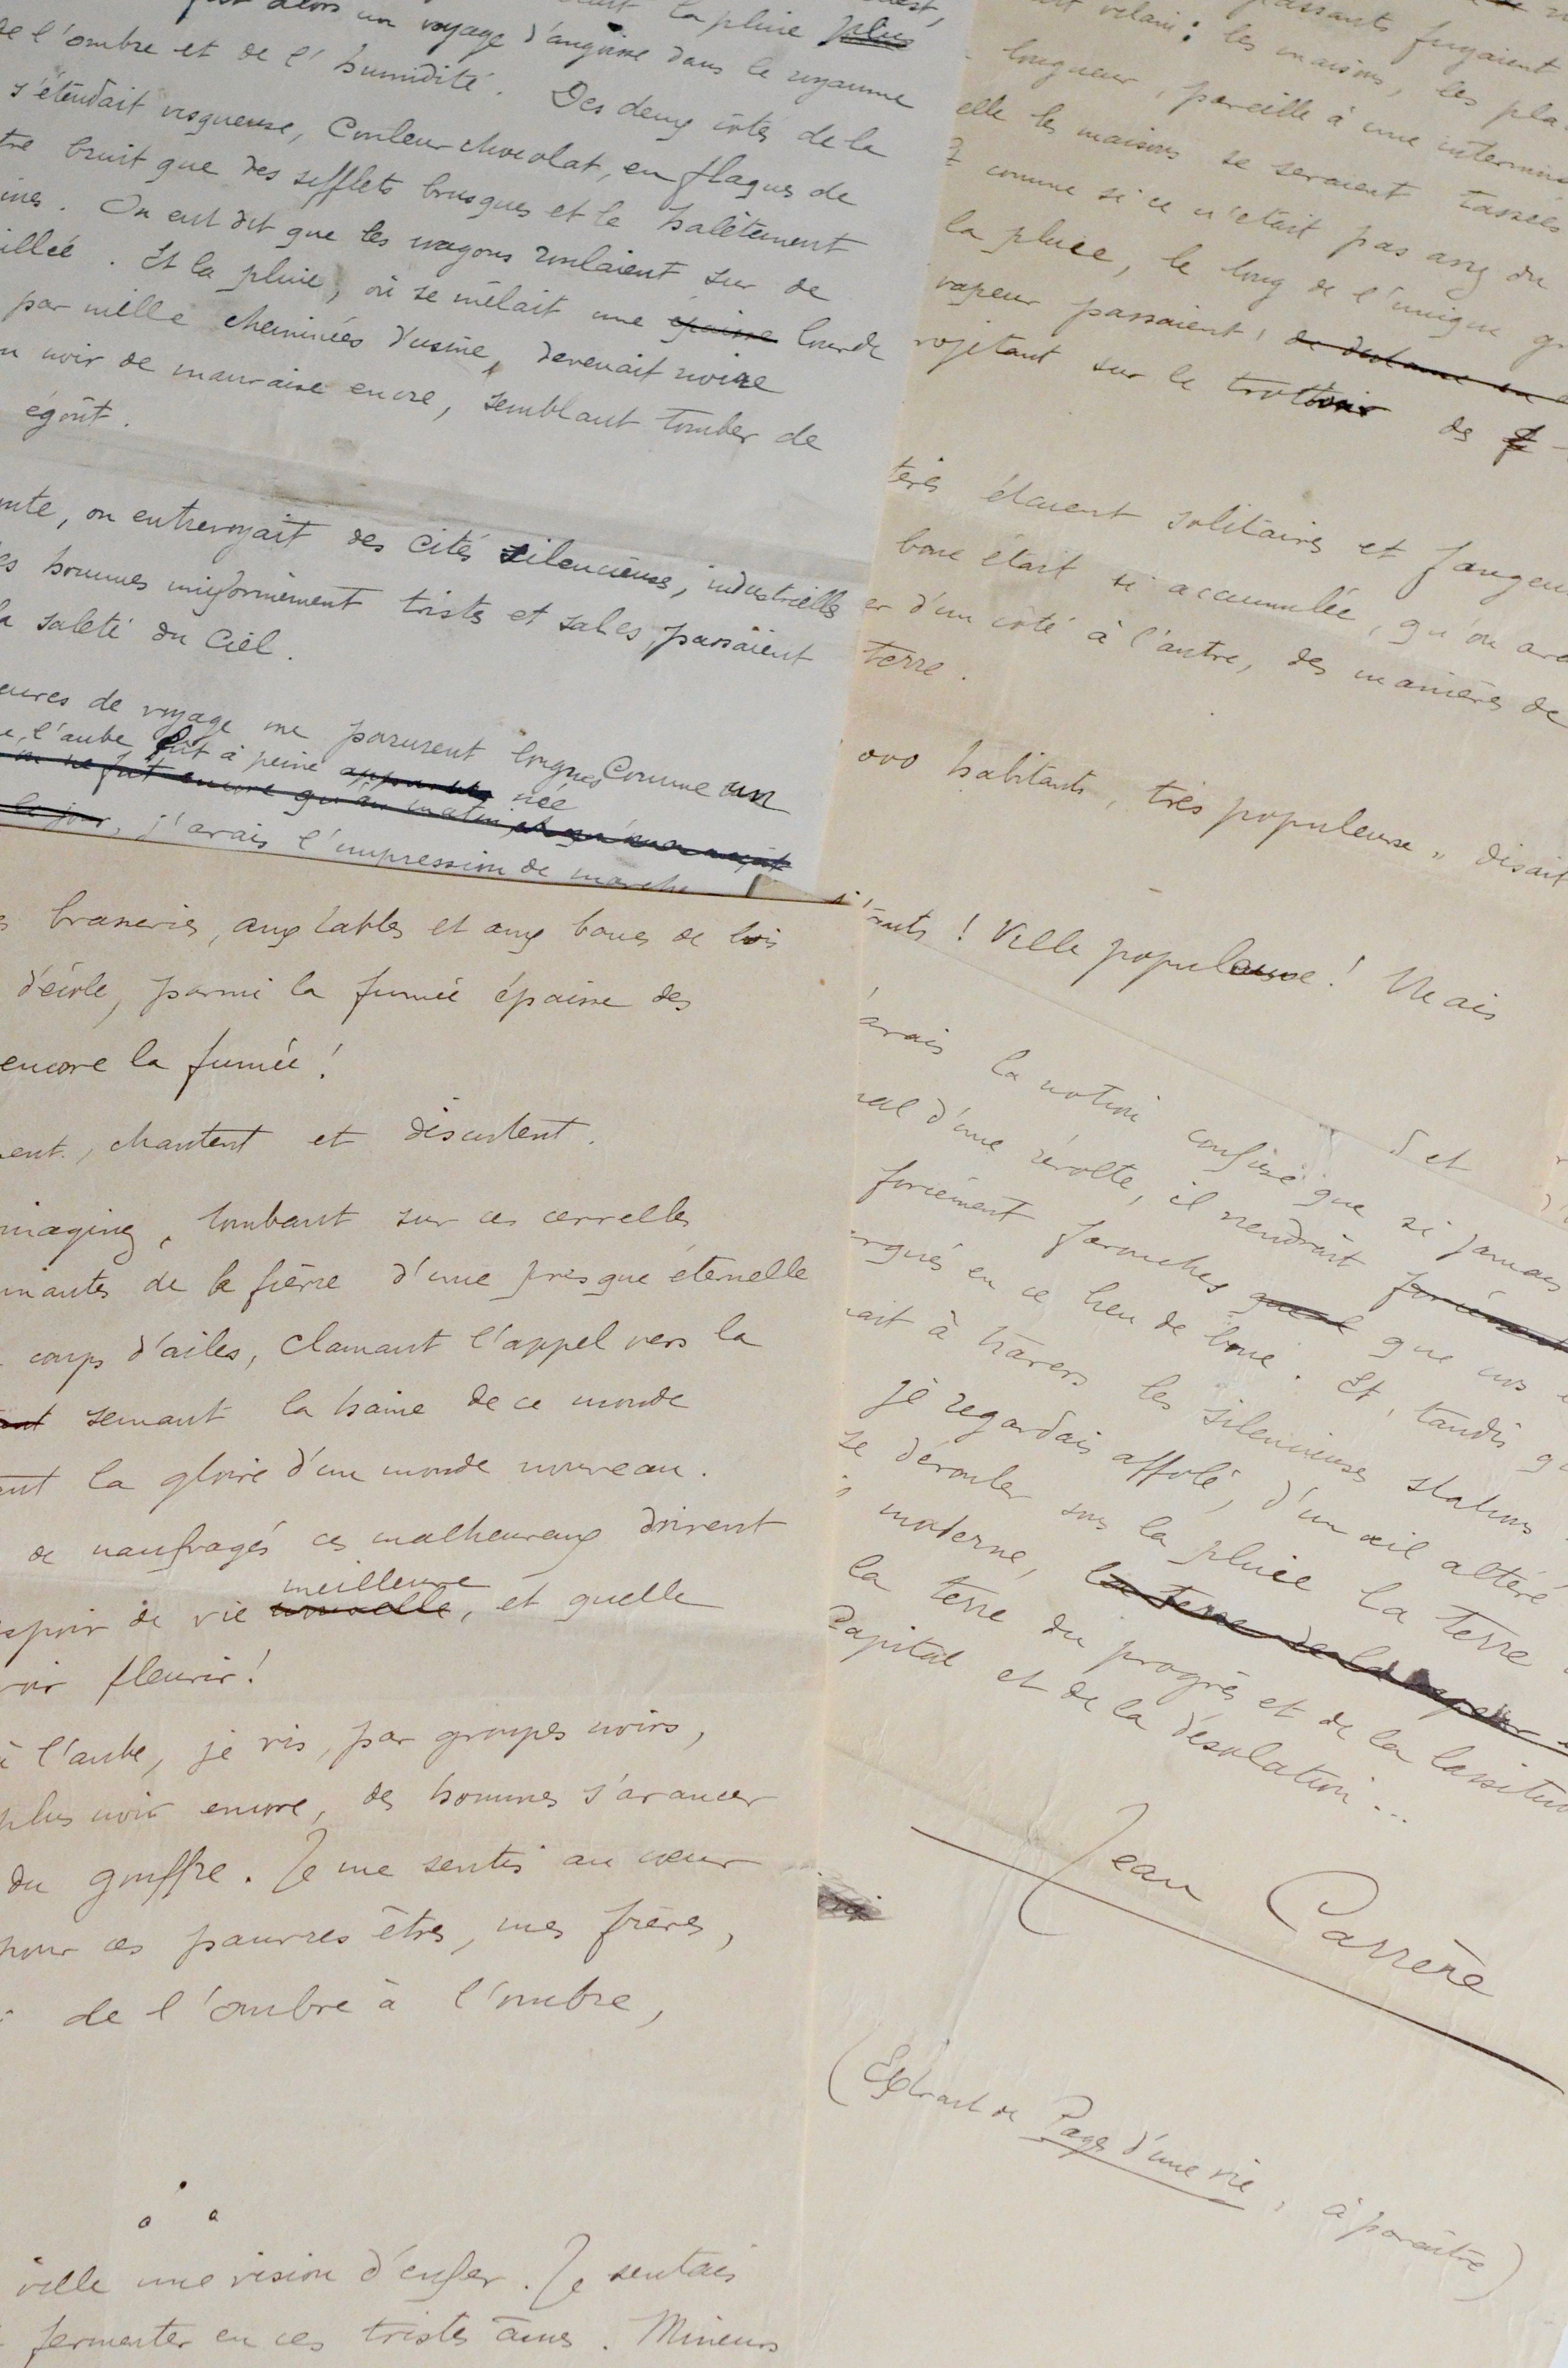 la pluie plus
fut alors un voyage d'angoisse dans le royaume
de l'ombre et de l'humidité. Des deux côtés de la
s'étendait visqueuse, couleur chocolat, en flaques de
tre bruit que des sifflets brusques et le halètement
ines. On eut dit que les wagons roulaient sur de
illée. Et la pluie, où se mêlait une épaisse lourde
par mille cheminées d'usine, devenait noire
n noir de mauvaise encre, semblant tomber de
égoût.
nte, on entrevoyait des cités silencieuses, industrielles
es hommes uniformément tristes et sales, passaient
la saleté du ciel.
eures de voyage me parurent longues comme un
e, l'aube fût à peine née
on ne fut encore qu'au matin
le jour, j'avais l'impression de marche
s brasseries, aux tables et aux bancs de bois
d'école, parmi la fumée épaisse des
encore la fumée!
ent, chantent et discutent.
imaginez, tombant sur ces cervelles
inantes de la fièvre d'une presque éternelle
coups d'ailes, clamant l'appel vers la
semant la haine de ce monde
ant la gloire d'un monde nouveau.
de naufragés ces malheureux doivent
meilleure
espoir de vie nouvelle, et quelle
voir fleurir!
à l'aube, je vis, par groupes noirs,
plus noir encore, des hommes s'avancer
du gouffre. Je me sentis au cœur
pour ces pauvres êtres, mes frères,
de l'ombre à l'ombre,
ville une vision d'enfer. Je sentais
fermenter en ces tristes âmes. Mineurs
passants fuyaient
les maisons, les pla
longueur, pareille à une intermina
elle les maisons se seraient tassées
comme si ce n'était pas assez du
la pluie, le long de l'unique
vapeur passaient,
rojetant sur le trottoir des
étaient solitaires et fangeu
boue était si accumulée, qu'on ava
er d'un côté à l'autre, des manières de
terre.
000 habitants, très populeuse" disait
ants! Ville populeuse! Mais
et
avais la notion confuse que si jamais
d'une révolte, il viendrait forcément
forcément farouches que nos
en ce lieu de boue. Et, tandis q
ait à travers les silencieuses stations
je regardais affolé, d'un œil altéré
se dérouler sous la pluie la terre
moderne, la terre de la
la terre du progrès et de la lassitu
Capital et de la désolation...
Jean Carrère
(Extrait de Pages d'une vie, à paraître)